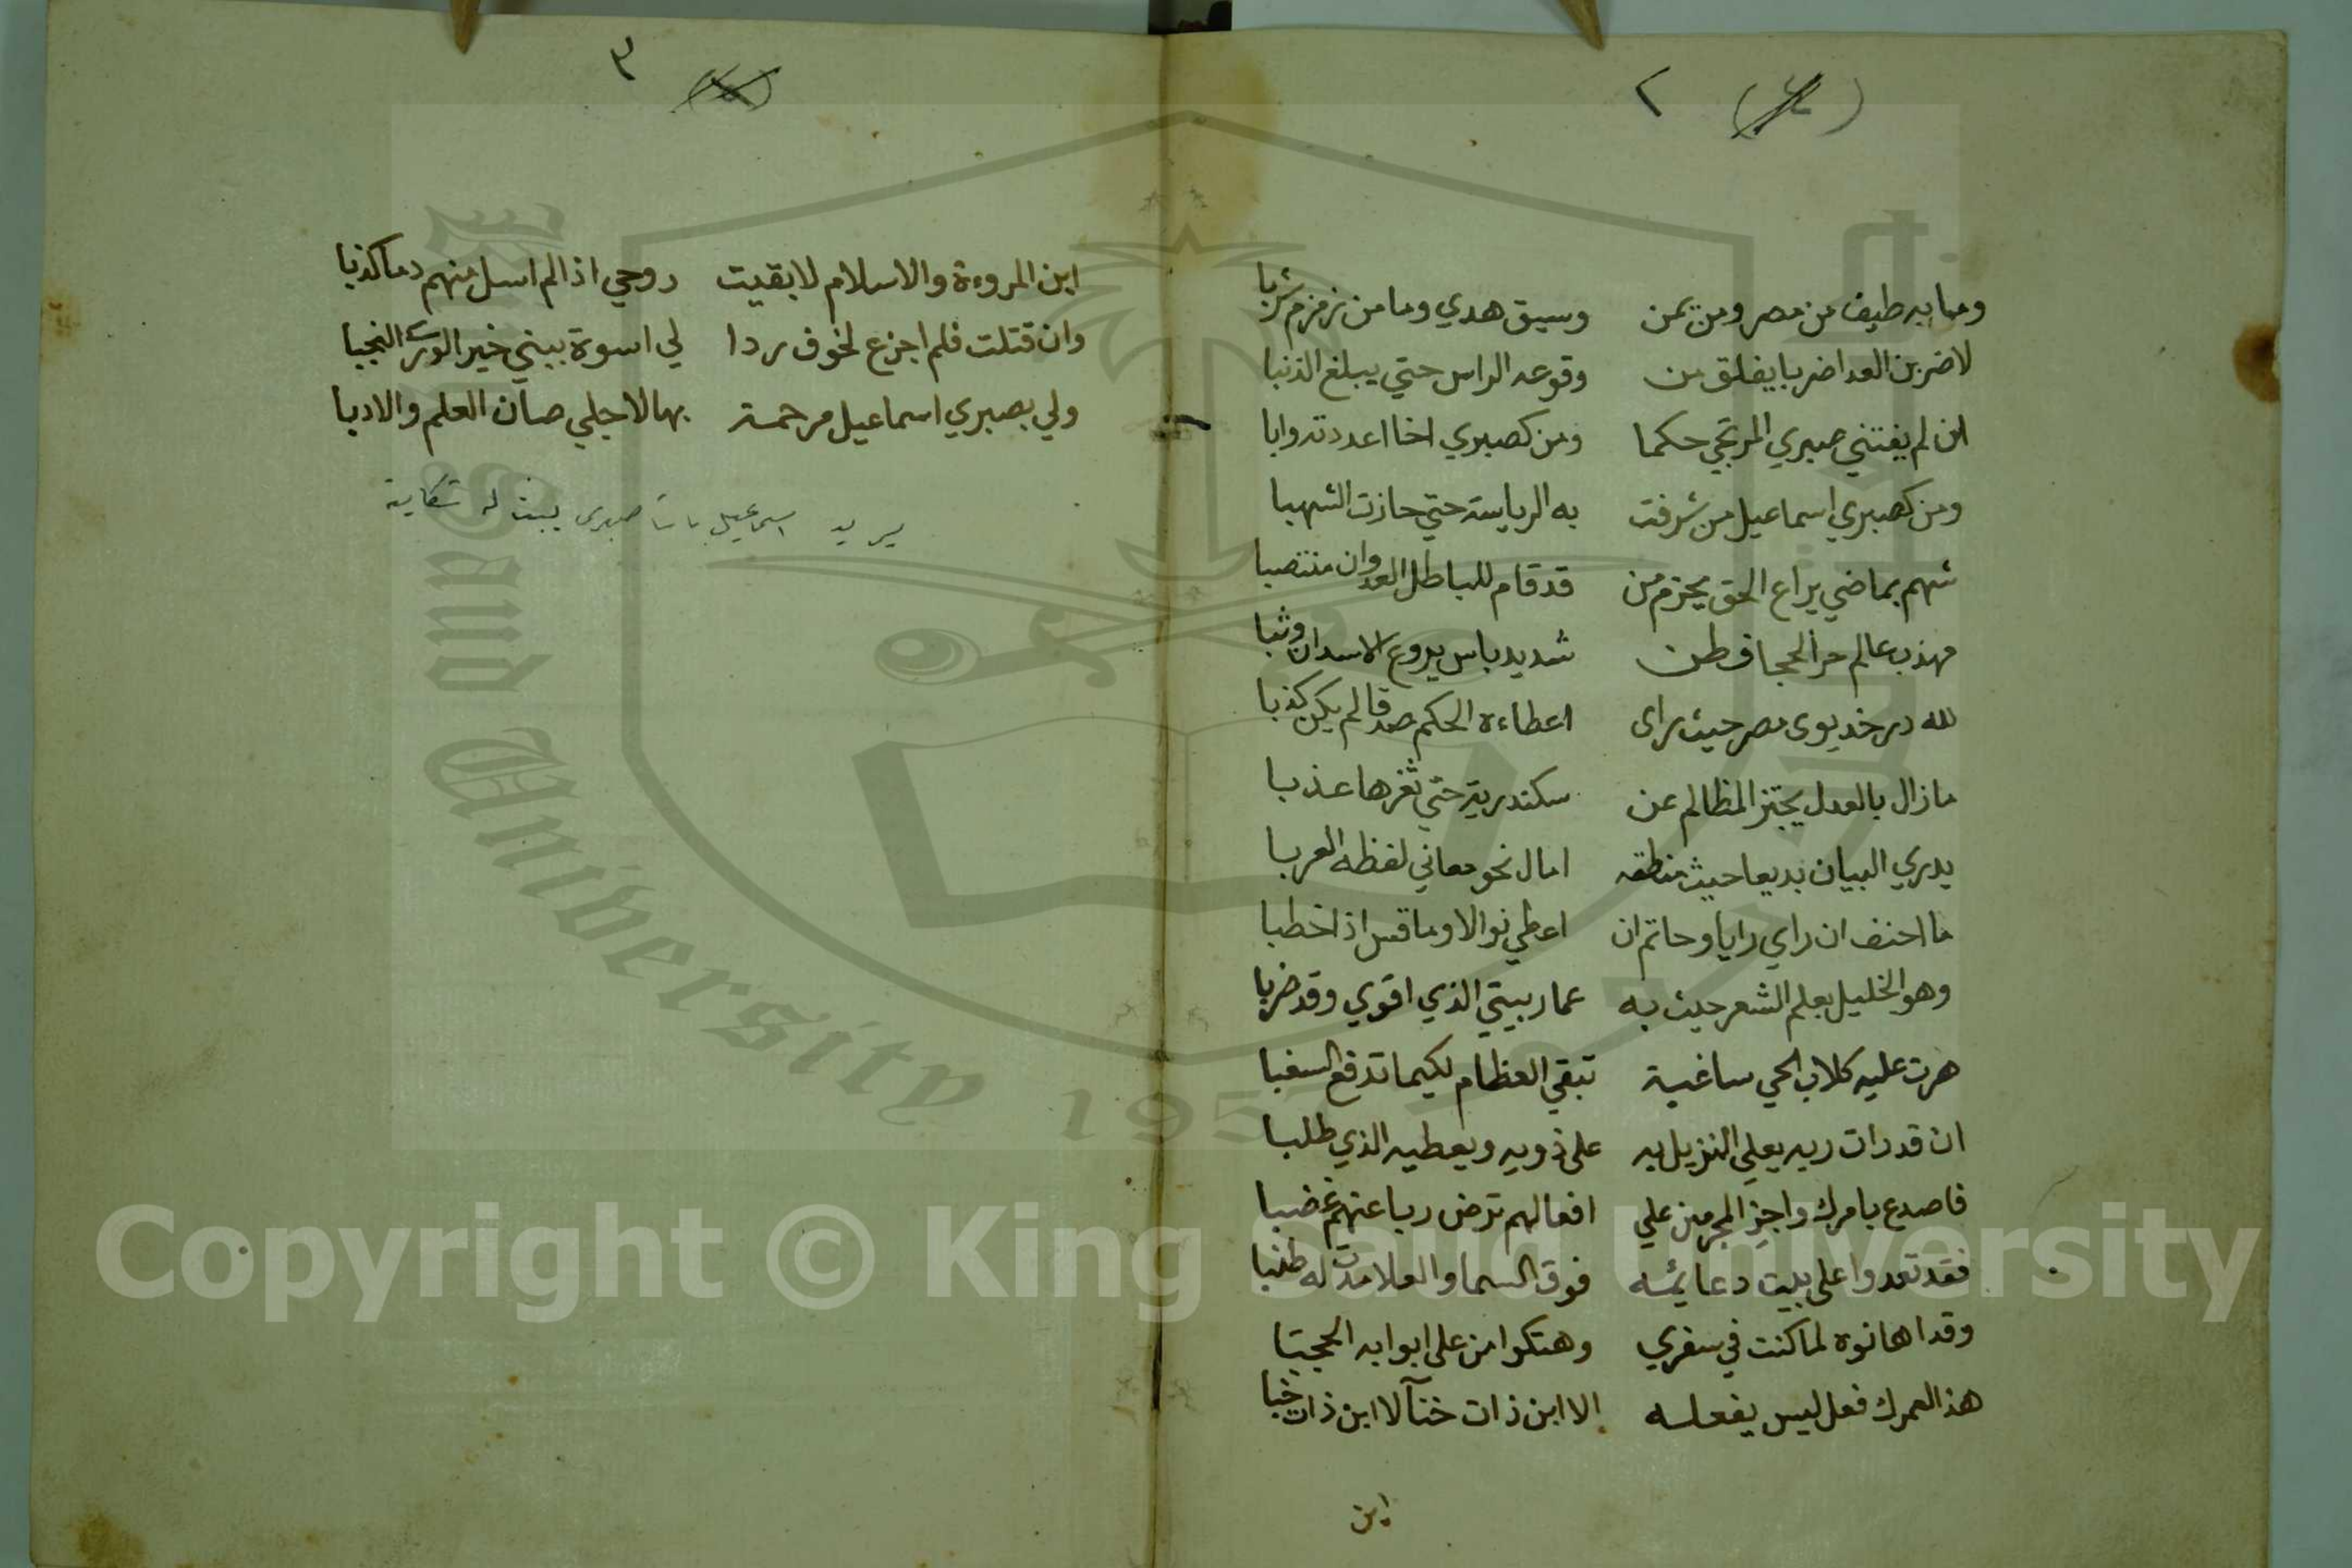 ٢ (٤)
وما به طيف من مصر ومن يمن وسيق هدي وما من زمزم شربا
لاضربن العدا ضربا يفلق من وقوعه الراس حتي يبلغ الذنبا
ان لم يفتني صبري المرتجي حكما ومن كصبري اخا اعددته وابا
ومن كصبري اسماعيل من شرفت به الرياسة حتي حازت الشهبا
شهم بماضي يراع الحق يحزم من قد قام للباطل العدوان منتصبا
مهذب عالم حر الحجا فطن شديد باس يروع الاسد ان وثبا
لله در خديوى مصر حيث راى اعطاءه الحكم صدقا لم يكن كذبا
ما زال بالعدل يجتز المظالم عن سكندرية حتي ثغرها عذبا
يدري البيان بديعا حيث منطقه امال نحو معاني لفظه العربا
ما احنف ان راي رايا وحاتم ان اعطي نوالا وما قس اذا خطبا
وهو الخليل بعلم الشعر حيث به عمار بيتي الذي اقوي وقد خربا
هرت عليه كلاب الحي ساغبة تبقي العظام لكيما تدفع السغبا
ان قد رات ربه يعلي النزيل به على ذويه ويعطيه الذي طلبا
فاصدع بامرك واجز المجرمين علي افعالهم ترض ربا عنهم غضبا
فقد تعدوا على بيت دعايمه فوق السما والعلا مدت له طنبا
وقد اهانوه لما كنت في سفري وهتكوا من على ابوابه الحجبا
هذا لعمرك فعل ليس يفعله الا ابن ذات خنا لا ابن ذات خبا
اين
٣
اين المروءة والاسلام لا بقيت روحي اذا لم اسل منهم دما كذبا
وان قتلت فلم اجزع لخوف ردا لي اسوة ببني خير الورى النجبا
ولي بصبري اسماعيل مرحمة بها لاجلي صان العلم والادبا
يريد اسماعيل باشا صبرى يبث له شكاية
Copyright © King Saud University
Saud University 1957